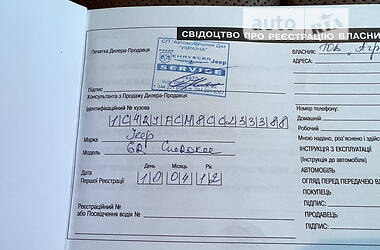 auto RIA
СВІДОЦТВО ПРО РЕЄСТРАЦІЮ ВЛАСНИ
Печатка Дилера-Продавця
СП "Автомобільний Дім
УКРАЇНА"
CHRYSLER
Jeep
SERVICE
Підпис
Консультанта з Продажу Дилера-Продавця
Ідентифікаційний № кузова
Марка Jeep
Модель GR Cherokee
День Місяць Рік
Першої Реєстрації 10 04 12
Реєстраційний №
або Посвідчення водія №
ВЛАСНИК: ТОВ
АДРЕСА:
Номер телефону:
Домашній
Робочий
Мною надано, роз'яснено і здійснено
ІНСТРУКЦІЯ З ЕКСПЛУАТАЦІЇ
(Інструкція до автомобіля)
АВТОМОБІЛЬ
ОГЛЯД ПЕРЕД ПЕРЕДАЧЕЮ ВЛ
ПОКУПЕЦЬ
ПІДПИС:
ПРОДАВЕЦЬ
ПІДПИС: